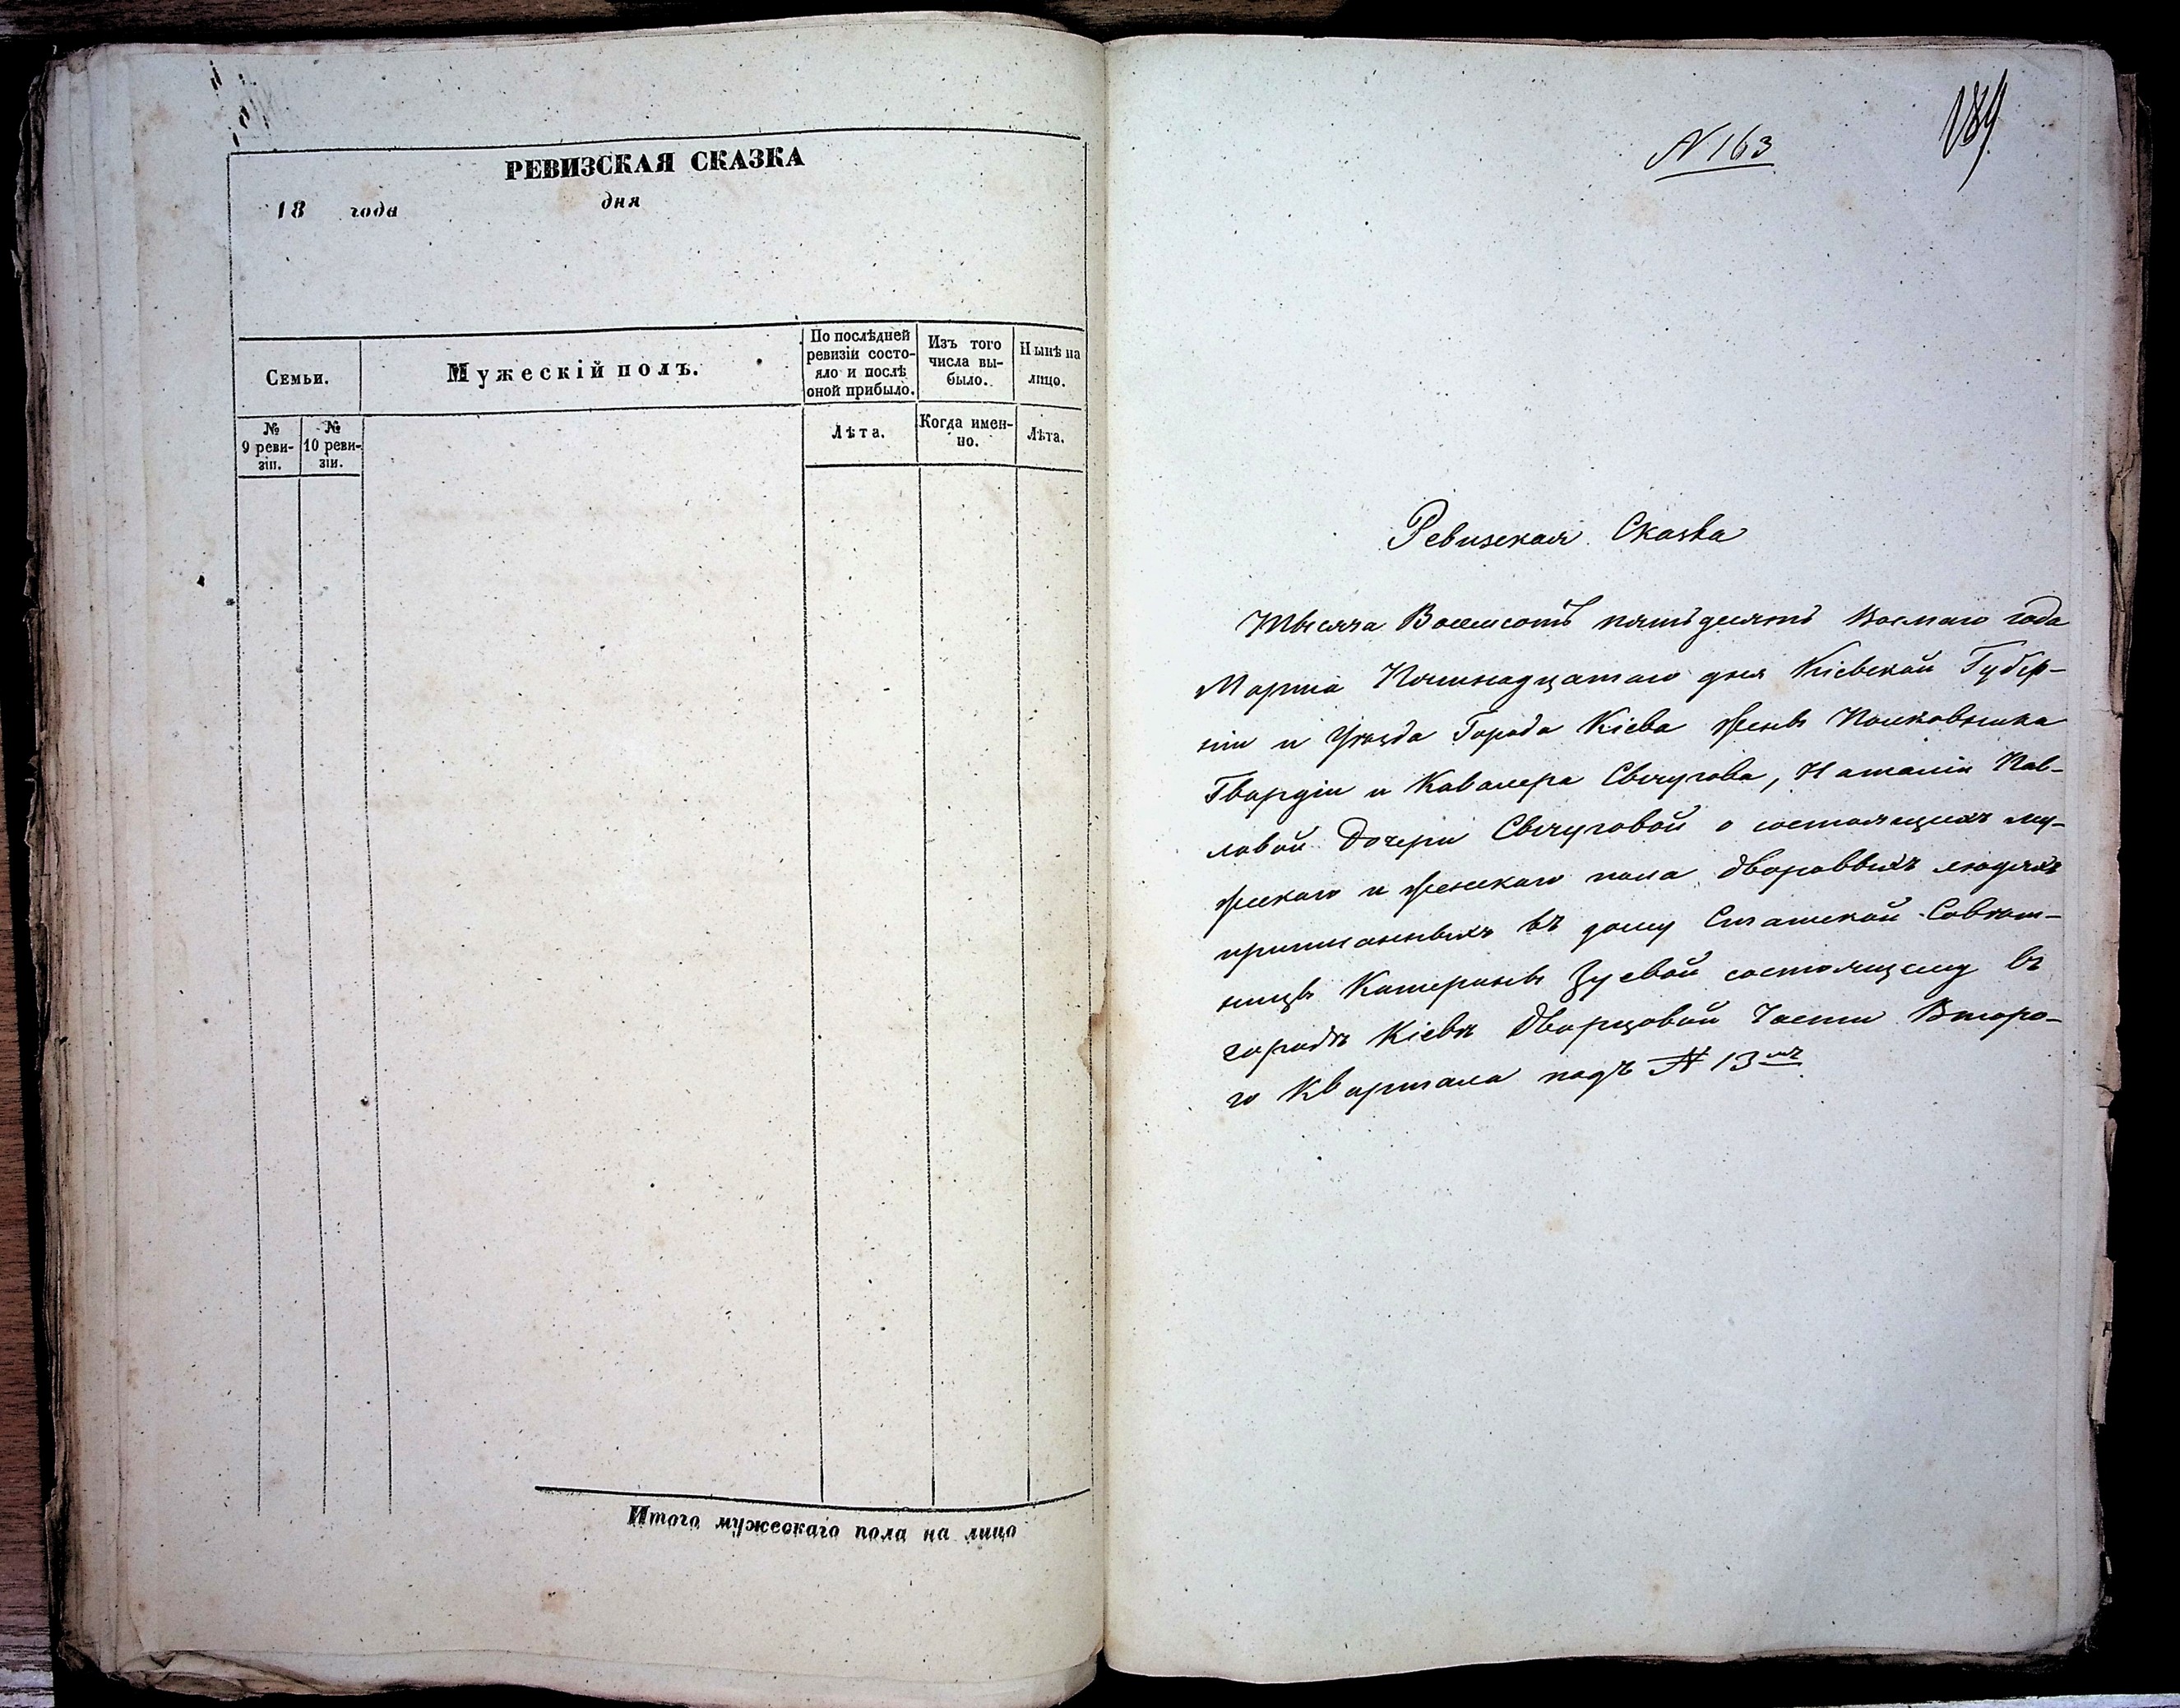 РЕВИЗСКАЯ СКАЗКА
18 года дня
Семьи.
Мужескій полъ.
По послѣдней
ревизіи состо-
яло и послѣ
оной прибыло.
Изъ того
числа вы-
было.
Нынѣ на
лицо.
№
9 реви-
зіи.
№
10 реви-
зіи.
Лѣта.
Когда имен-
но.
Лѣта.
Итого мужескаго пола на лицо
N 163
189
Ревизская Сказка
Тысяча Восемсотъ пятьдесятъ Восмаго года
Марта Пятнадцатаго дня Кіевской Губер-
ніи и Уѣзда Города Кіева Жены Полковника
Гвардіи и Кавалера Наталіи Пав-
ловой Дочери о состоящихъ му-
жескаго и женскаго пола дворовыхъ людяхъ
приписанныхъ къ дому Статской Совѣт-
ницы Катерины Зуевой состоящему въ
городѣ Кіевѣ Дворцовой Части Второ-
го Квартала подъ N 13мъ